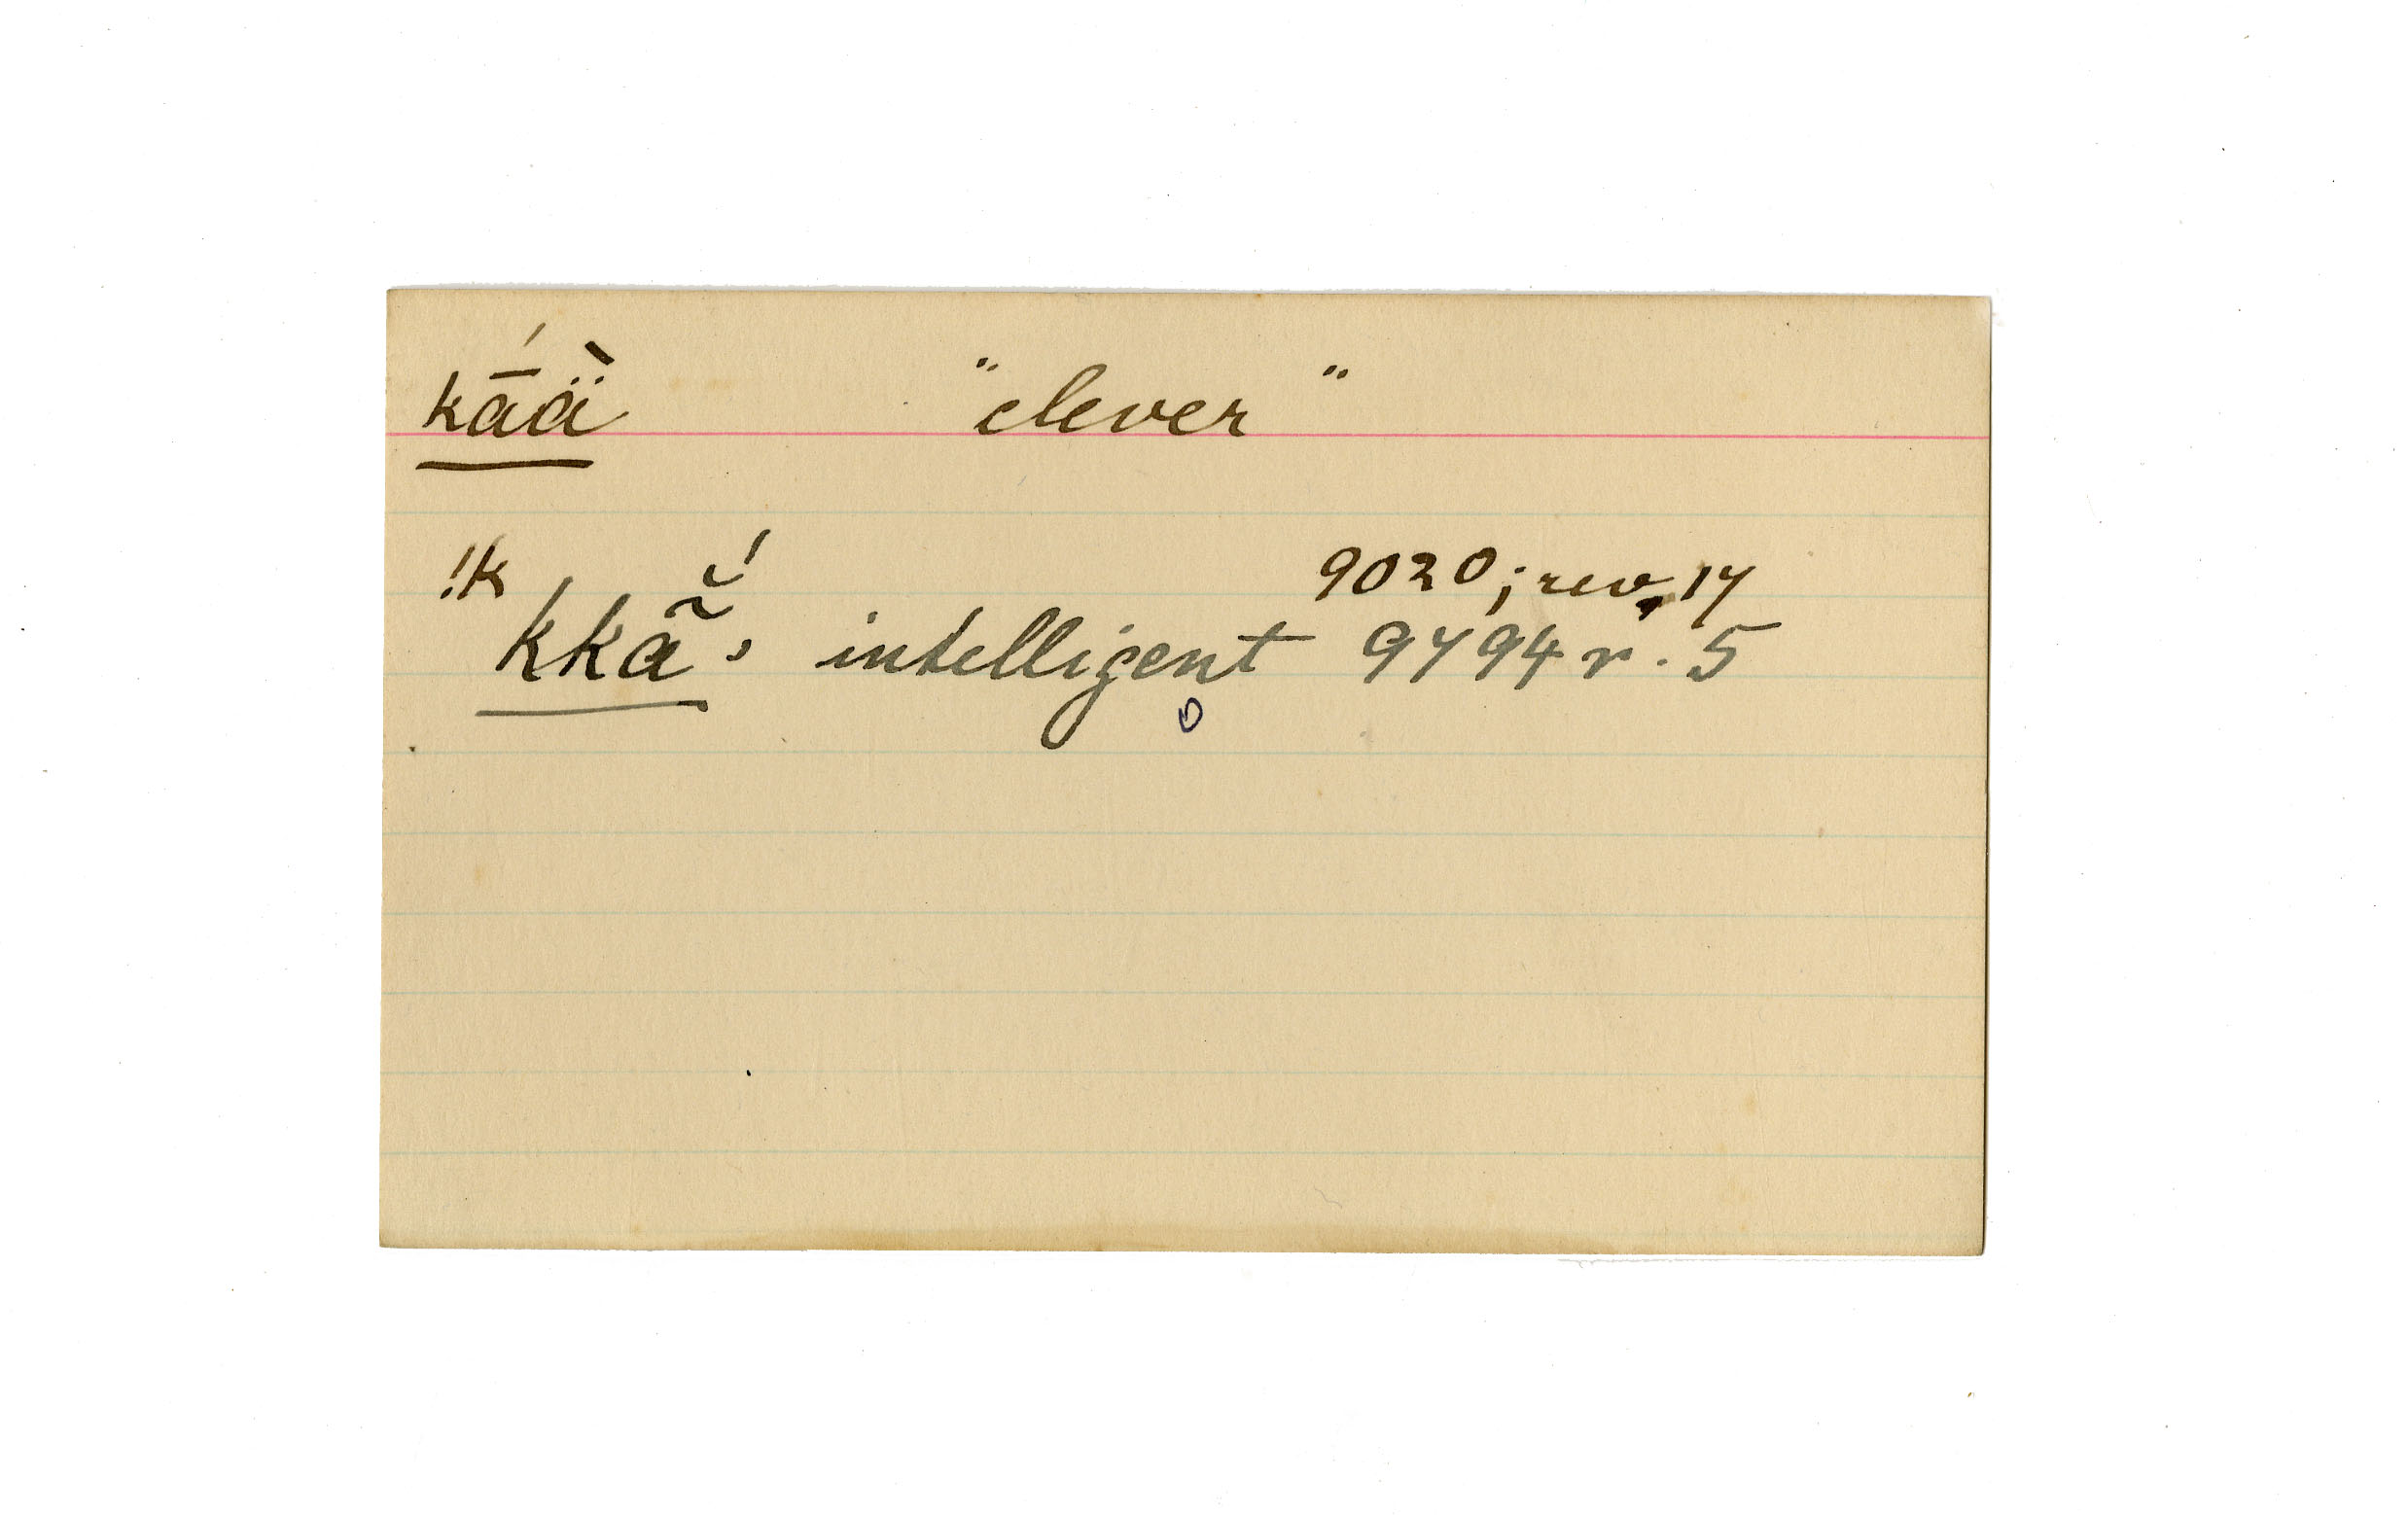 kā́ä̀ "clever"
!k 9020; rev. 17
kkã̆́, intelligent 9794 r. 5